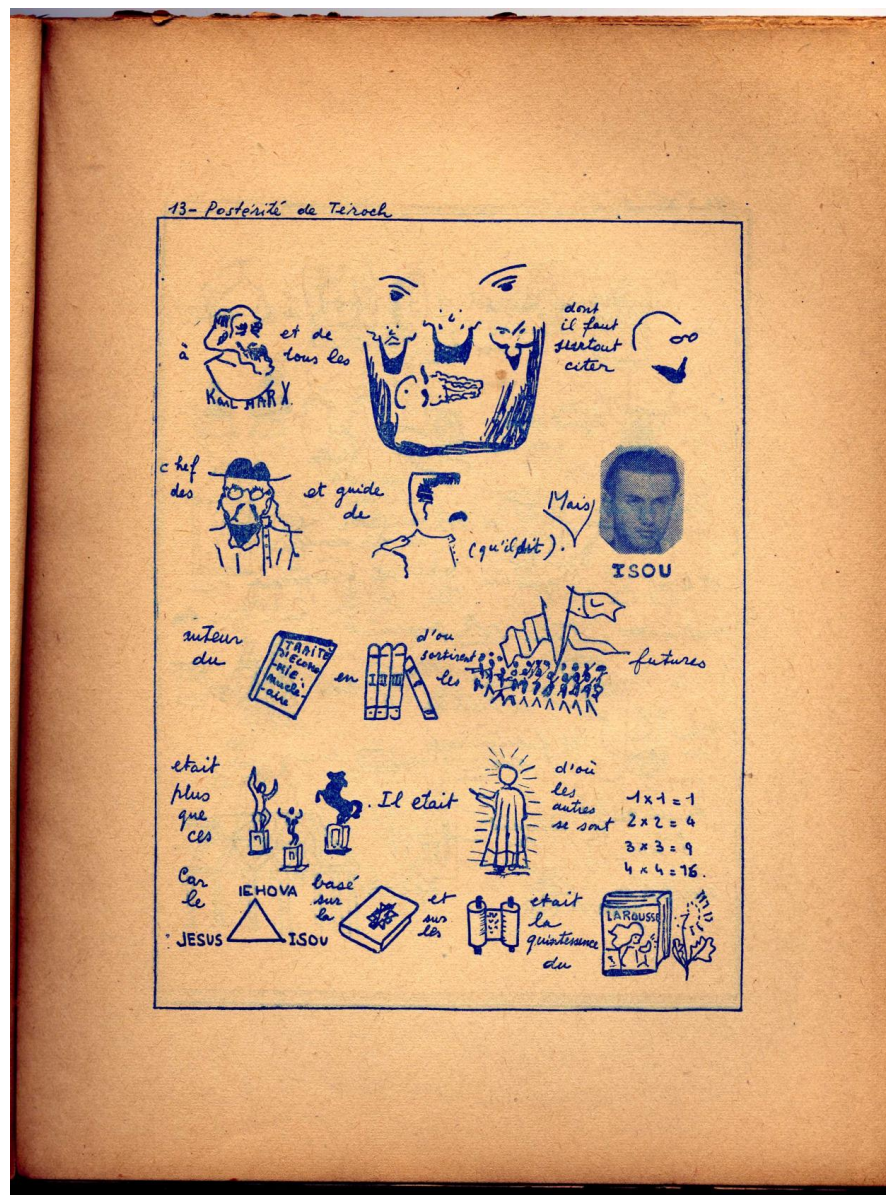 13- Postérité de Téroch
à
Karl MARX.
et de
tous les
dont
il faut
surtout
citer
chef
des
et guide
de
(qu'il dit).
Mais
ISOU
auteur
du
TRAITÉ
D'ÉCONO
-MIE
Nuclé
-aire
en
I II III
d'où
sortirent
les
futures
etait
plus
que
ces
. Il etait
d'où
les
autres
se sont
1 x 1 = 1
2 x 2 = 4
3 x 3 = 9
4 x 4 = 16.
Car
le
IEHOVA
JESUS
ISOU
basé
sur
la
et
sur
les
etait
la
quintessence
du
LAROUSSE